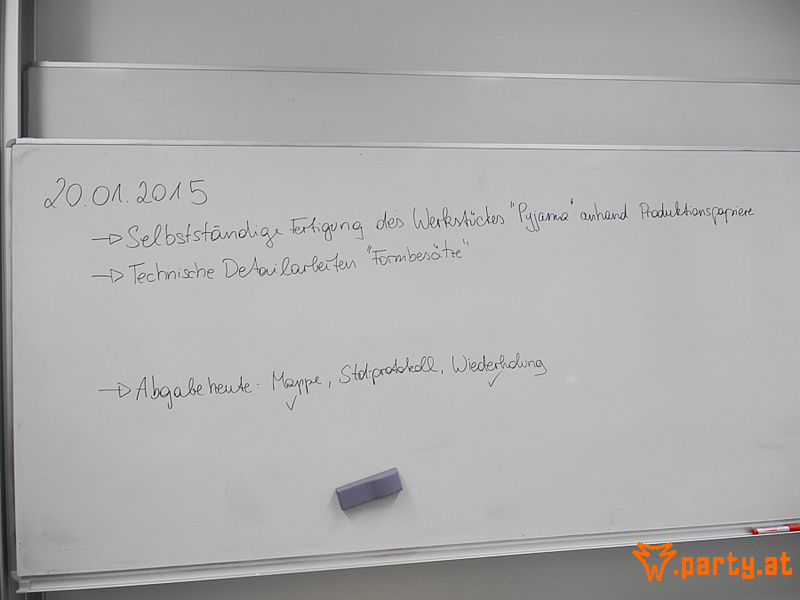 20.01.2015
→ Selbstständige Fertigung des Werkstückes "Pyjama" anhand Produktionspapiere
→ Technische Detailarbeiten "Formbesätze"
→ Abgabe heute: Mappe, Std.protokoll, Wiederholung
✓ ✓
w.party.at